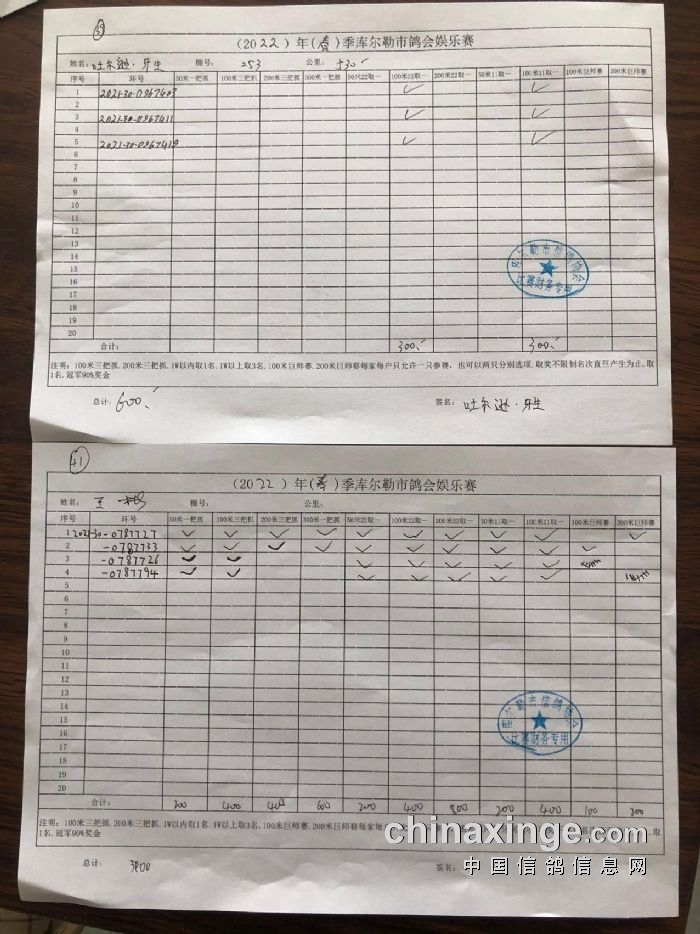 39
(2022)年(春)季库尔勒市鸽会娱乐赛
姓名: 吐尔逊·牙生 棚号: 253 公里:
序号 环号 50米一把抓 100米三把抓 200米三把抓 300米一把抓 50米22取一 100米22取一 200米22取一 50米11取一 100米11取一 100米巨师赛 200米巨师赛
1 2021-30-0967403 ✓ ✓
2
3 2021-30-0967411 ✓ ✓
4
5 2021-30-0967419 ✓ ✓
6
7
8
9
10
11
12
13
14
15
16
17
18
19
20
库尔勒市信鸽协会
比赛财务专用
合计: 300 300
注明:100米三把抓.200米三把抓.1W以内取1名.1W以上取3名.100米巨师赛.200米巨师赛每家每户只允许一只参赛,也可以两只分别选项.取奖不限制名次直至产生为止.取
1名.冠军90%奖金
总计: 600. 签名: 吐尔逊·牙生
41
(2022)年(春)季库尔勒市鸽会娱乐赛
姓名: 王 棚号: 公里:
序号 环号 50米一把抓 100米三把抓 200米三把抓 300米一把抓 50只22取一 100米22取一 200米22取一 50米11取一 100米11取一 100米巨师赛 200米巨师赛
1 2021-30-0787727 ✓ ✓ ✓ ✓ ✓ ✓ ✓ ✓ ✓ ✓
2 -0787733 ✓ ✓ ✓ ✓ ✓ ✓ ✓ ✓ ✓ ✓
3 -0787726 ✓ ✓ ✓ ✓ ✓ ✓ ✓
4 -0787794 ✓ ✓ ✓ ✓ ✓ ✓ ✓
5
6
7
8
9
10
11
12
13
14
15
16
17
18
19
20
库尔勒市信鸽协会
比赛财务专用
合计: 200 400 400 600 200 400 800 200 400 100 200
注明:100米三把抓.200米三把抓.1W以内取1名.1W以上取3名.100米巨师赛.200米巨师赛每家每 取
1名.冠军90%奖金
chinaxinge.com
中国信鸽信息网
总计: 签名: